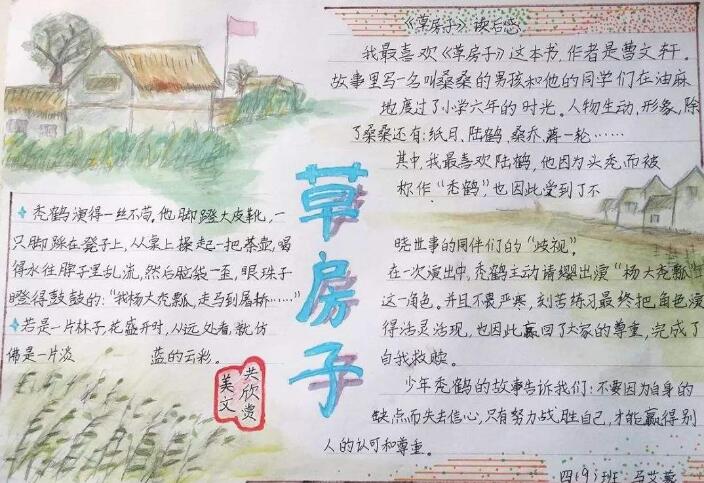 《草房子》读后感
我最喜欢《草房子》这本书,作者是曹文轩。
故事里写一名叫桑桑的男孩和他的同学们在油麻
地度过了小学六年的时光。人物生动,形象,除
了桑桑还有:纸月、陆鹤、桑乔、蒋一轮……
其中,我最喜欢陆鹤,他因为头秃而被
称作“秃鹤”,也因此受到了不
晓世事的同伴们的“歧视”。
在一次演出中,秃鹤主动请缨出演“杨大秃瓢”
这一角色。并且不畏严寒,刻苦练习,最终把角色演
得活灵活现,也因此赢回了大家的尊重,完成了
自我救赎。
少年秃鹤的故事告诉我们:不要因为自身的
缺点而失去信心,只有努力战胜自己,才能赢得别
人的认可和尊重。
四(9)班 马艾
草房子
秃鹤演得一丝不苟,他脚蹬大皮靴,一
只脚踩在凳子上,从桌上操起一把茶壶,喝
得水往脖子里乱流,然后脑袋一歪,眼珠子
瞪得鼓鼓的:“我杨大秃瓢,走马到屠桥……”
若是一片林子,花盛开时,从远处看,就仿
佛是一片淡 蓝的云彩。
美文
共欣赏